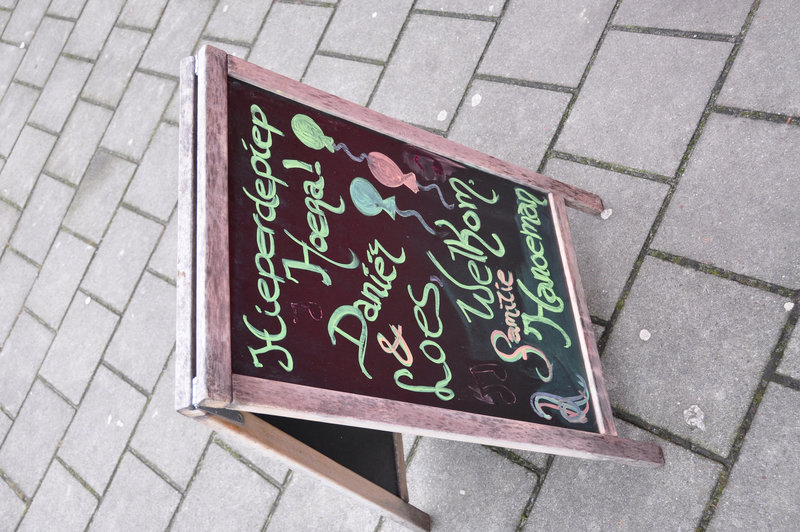 Hieperdepiep
Hoera!
Daniér
& Loes
Welkom.
Familie
Hanoeman